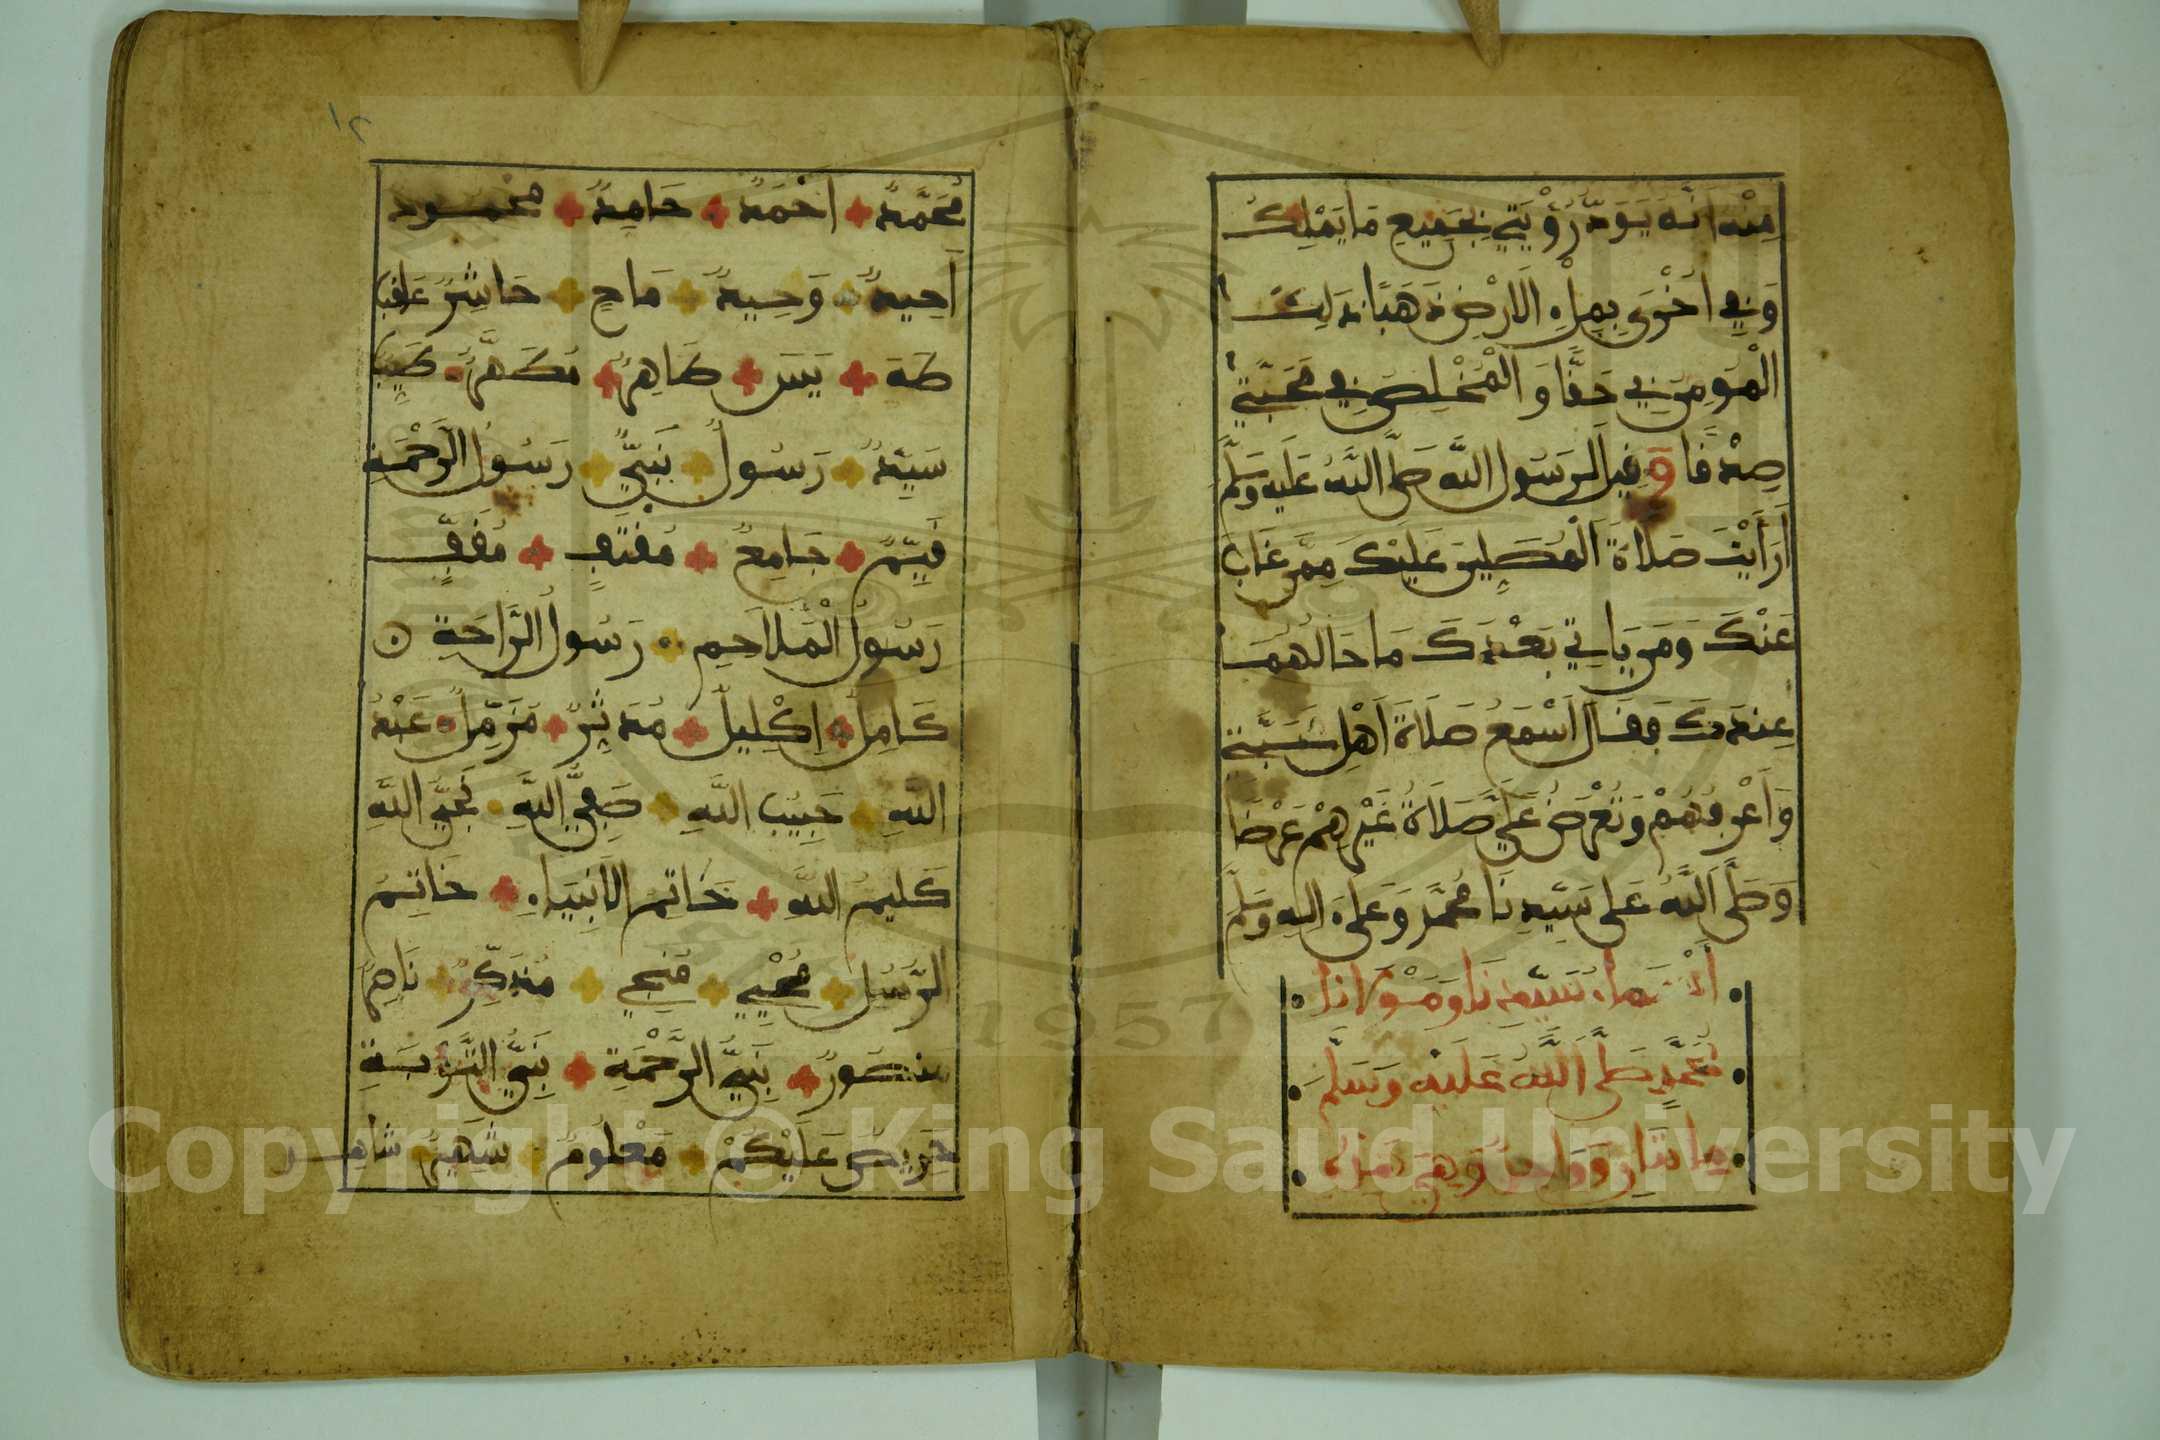 مِنْهُ انَّهُ يَوَدُّ رُؤْيَتِي بِجَمِيعِ مَا يَمْلِكُ
وَفِي اُخْرَى بِمِلْءِ الَارْضِ ذَهَبًا ذَلِكَ
الْمُومِنُ بِي حَقًّا وَالْمُخْلِصُ فِي مَحَبَّتِي
صِدْقًا وَقِيلَ لِرَسُولِ اللَّهِ صَلَّى اللَّهُ عَلَيْهِ وَسَلَّمَ
أَرَأَيْتَ صَلَاةَ الْمُصَلِّينَ عَلَيْكَ مِمَّن غَابَ
عَنْكَ وَمَن يَاتِي بَعْدَكَ مَا حَالُهُمَا
عِنْدَكَ فَقَالَ أَسْمَعُ صَلَاةَ أَهْلِ مَحَبَّتِي
وَأَعْرِفُهُمْ وَتُعْرَضُ عَلَيَّ صَلَاةُ غَيْرِهِمْ عَرْضًا
وَصَلَّى اللَّهُ عَلَى سَيِّدِنَا مُحَمَّدٍ وَعَلَى ءَالِهِ وَسَلَّمَ
أَسْمَاءُ سَيِّدِنَا وَمَوْلَانَا
مُحَمَّدٍ صَلَّى اللَّهُ عَلَيْهِ وَسَلَّمَ
مِائَتَانِ وَوَاحِدٌ وَهِيَ هَذِهِ
١٢
مُحَمَّدٌ أَحْمَدُ حَامِدٌ مَحْمُودٌ
أَحِيدٌ وَحِيدٌ مَاحٍ حَاشِرٌ عَاقِبٌ
طَهَ يَسَ طَاهِرٌ مُطَهَّرٌ طَيِّبٌ
سَيِّدٌ رَسُولٌ نَبِيٌّ رَسُولُ الرَّحْمَةِ
قَيِّمٌ جَامِعٌ مُقْتَفٍ مُقَفٍّ
رَسُولُ الْمَلَاحِمِ رَسُولُ الرَّاحَةِ
كَامِلٌ إِكْلِيلٌ مُدَّثِّرٌ مُزَّمِّلٌ عَبْدُ
اللَّهِ حَبِيبُ اللَّهِ صَفِيُّ اللَّهِ نَجِيُّ اللَّهِ
كَلِيمُ اللَّهِ خَاتِمُ الَانْبِيَاءِ خَاتِمُ
الرُّسُلِ مُحْيِي مُنْجِي مُذَكِّرٌ نَاصِرٌ
مَنْصُورٌ نَبِيُّ الرَّحْمَةِ نَبِيُّ التَّوْبَةِ
حَرِيصٌ عَلَيْكُمْ مَعْلُومٌ شَهِيرٌ شَاهِدٌ
Copyright © King Saud University
1957